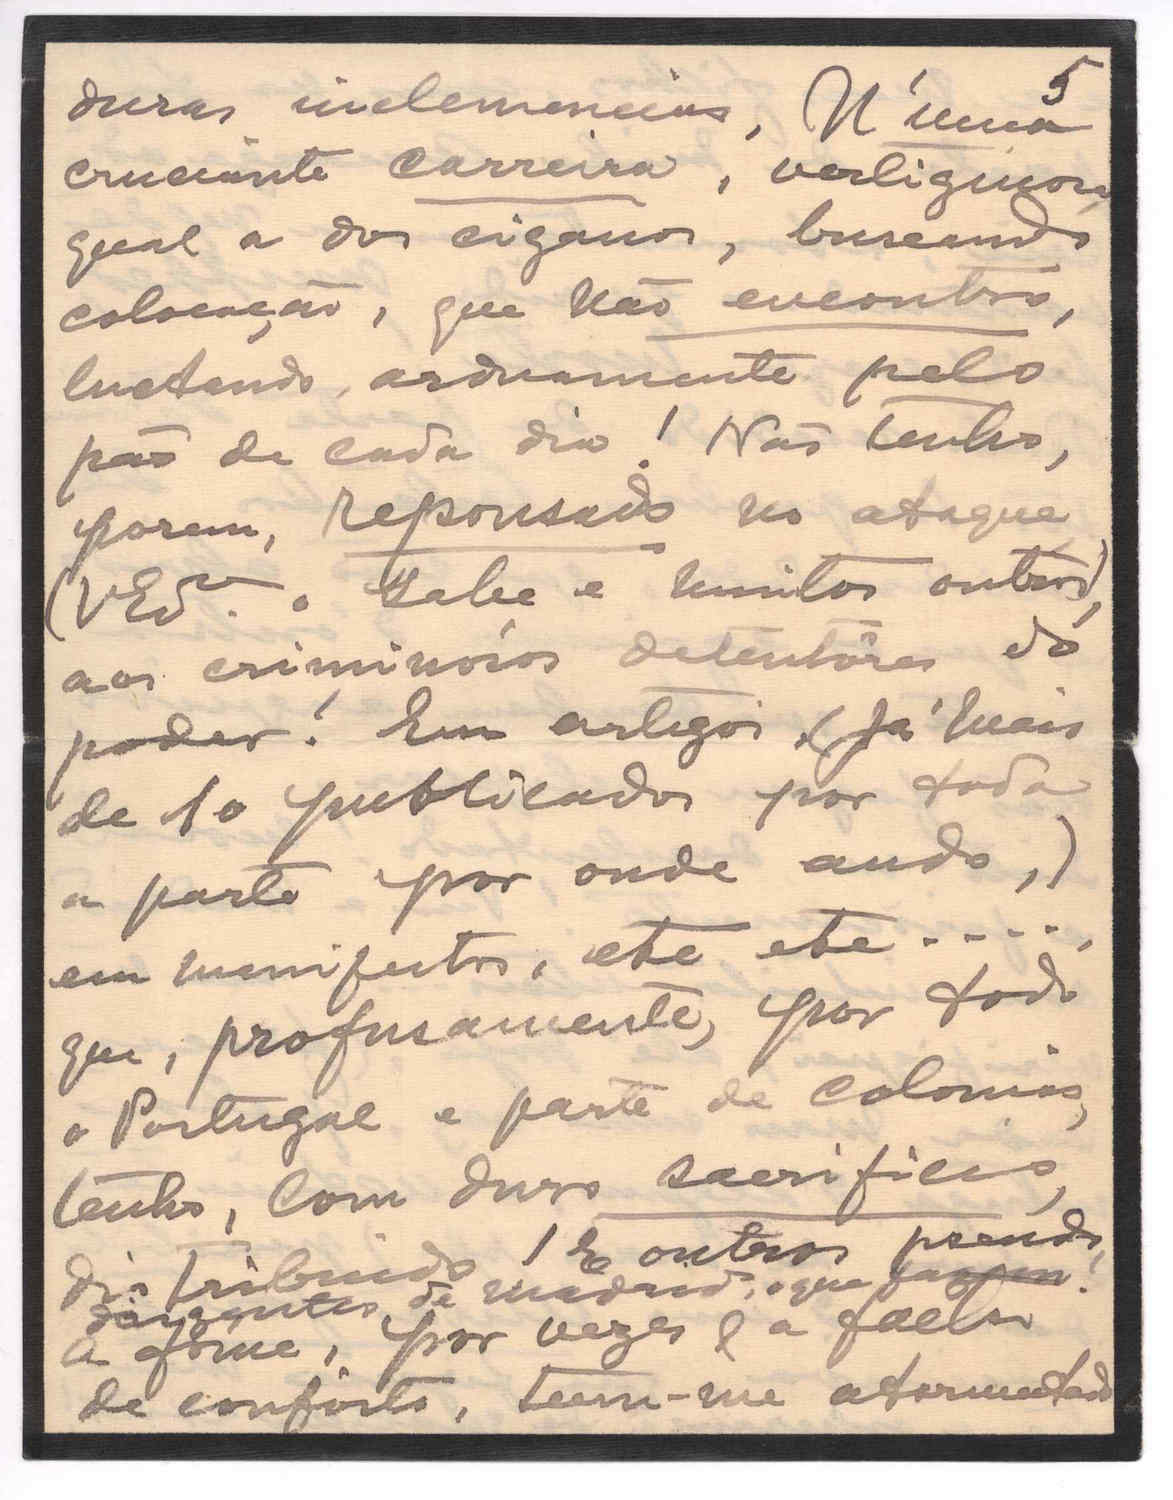 5
duras inclemencias, N'uma
cruciante carreira, vertiginosa
qual a dos ciganos, buscando
colocação, que não encontro,
luctando arduamente pelo
pão de cada dia! Não tenho,
porem, repousado no ataque
(V Exª. sabe e muitos outros),
aos criminósos detentôres do
poder! Em artigos, (já mais
de 10 publicados por toda
a parte por onde ando,)
em manifestos, etc etc.....
que, profusamente, por todo
o Portugal e parte de colonias,
tenho, com duro sacrificio,
distribuido! E outros pseudo,
dirigentes de Madrid, o que fazem?
A fome, por vezes e a falta
de conforto, teem-me atormentado